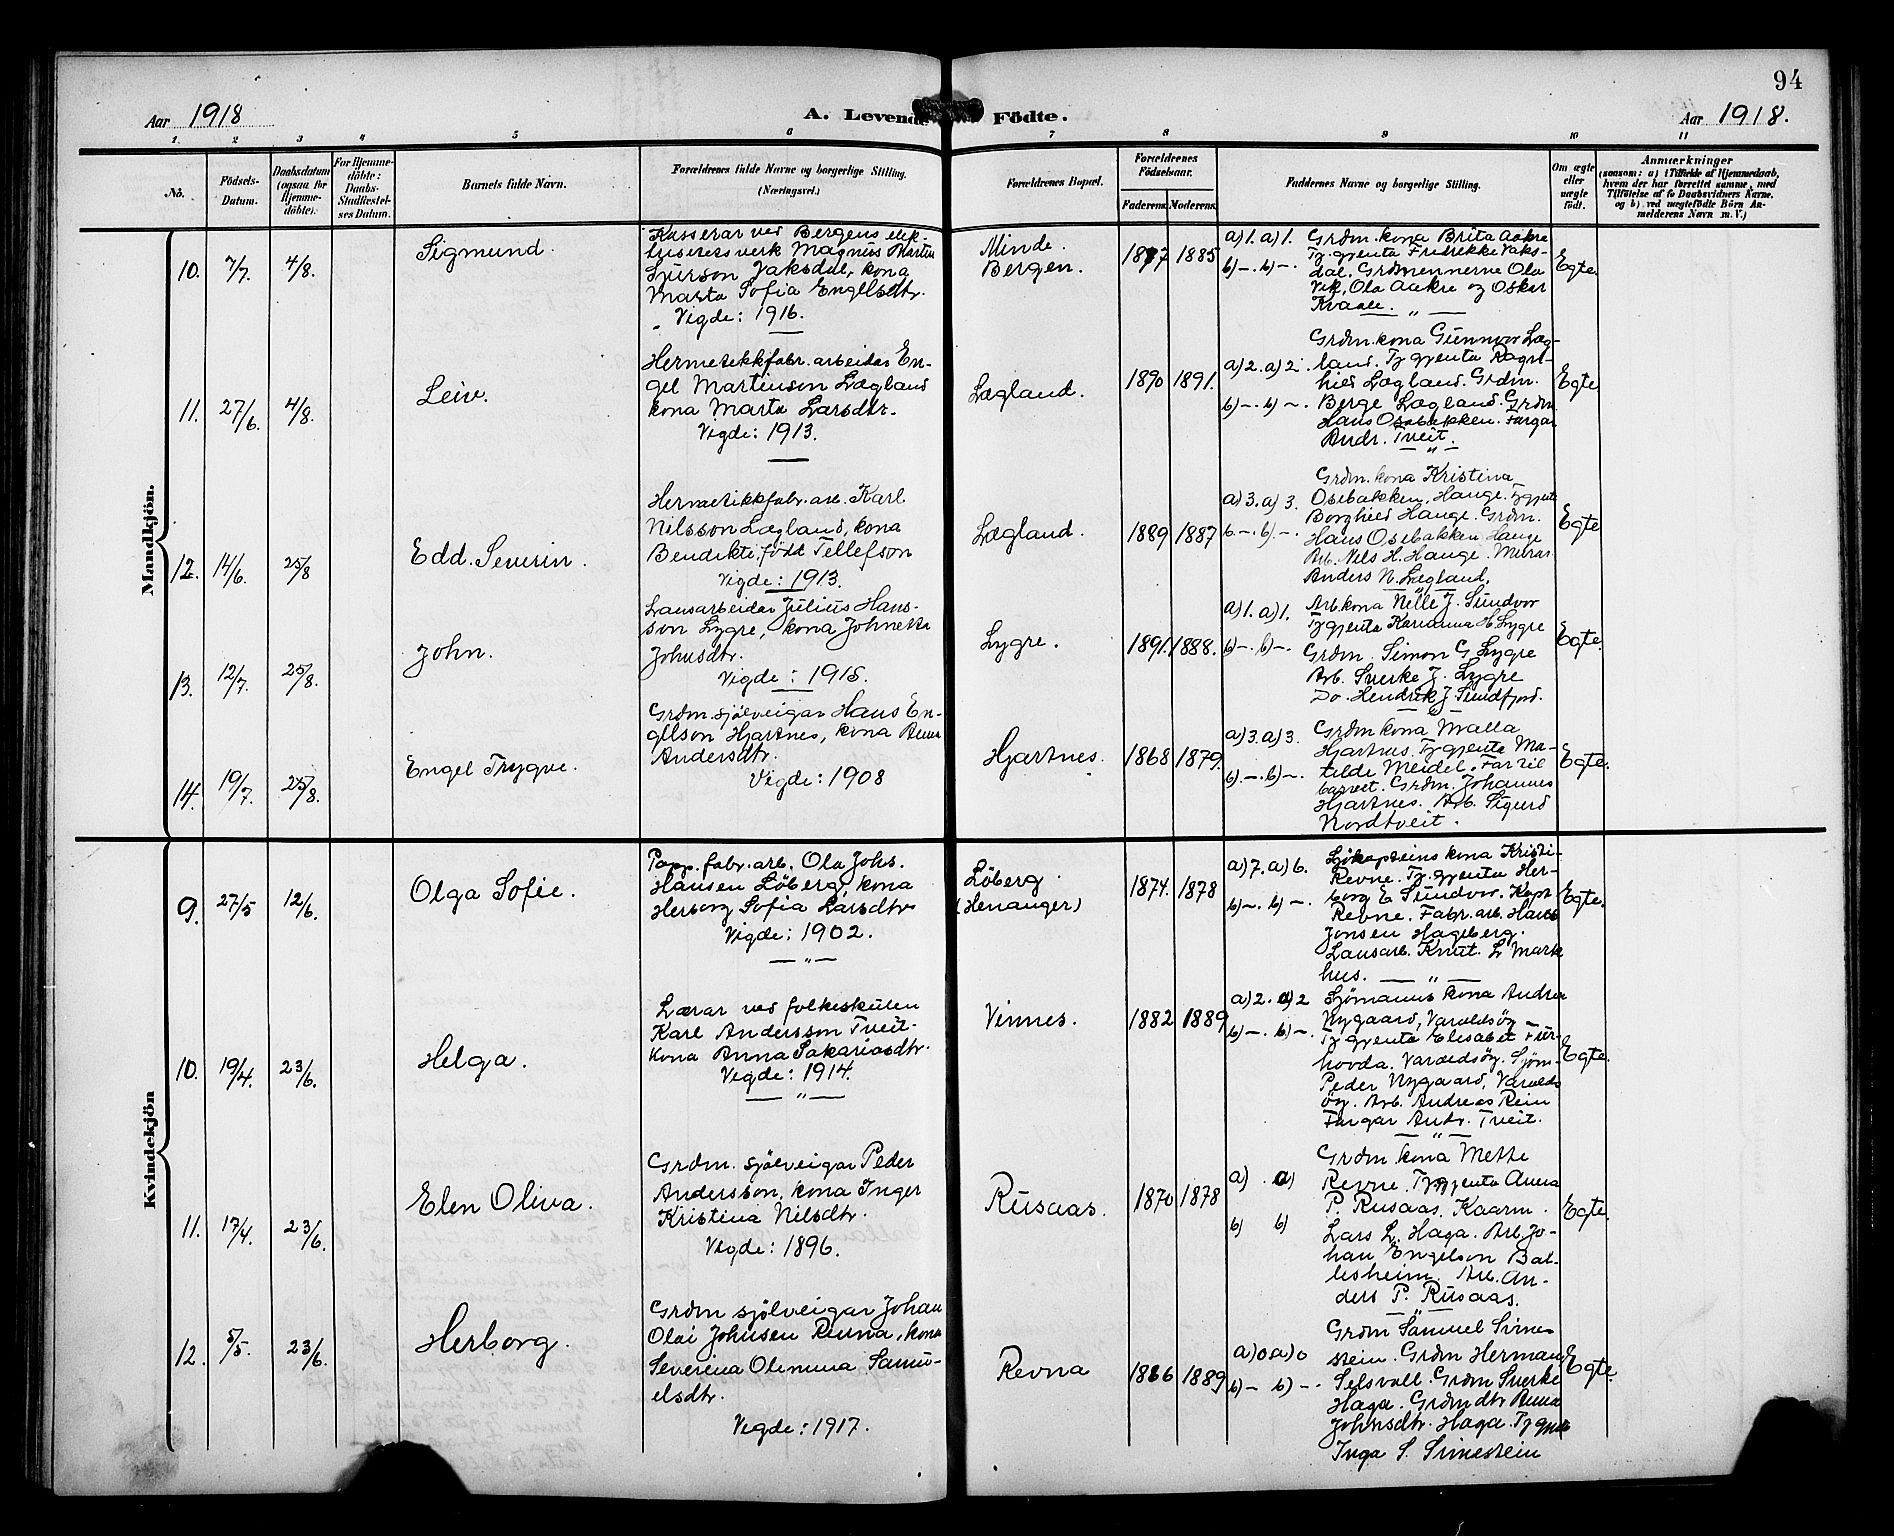 94
Aar 1918
A. Levende Födte.
Aar 1918.
1. 2 3 4 5 6 7 8 9 10 11
No.
Födsels-
Datum.
Daabsdatum
(ogsaa for
Hjemme-
döbte).
For Hjemme-
döbte:
Daabs-
Stadfæstel-
ses Datum.
Barnets fulde Navn.
Forældrenes fulde Navne og borgerlige Stilling.
(Næringsvei.)
Forældrenes Bopæl.
Forældrenes
Födselsaar.
Faderens. Moderens.
Faddernes Navne og borgerlige Stilling.
Om ægte
eller
uægte
födt.
Anmærkninger
(saasom: a) i Tilfælde af Hjemmedaab,
hvem der har forrettet samme, med
Tilföielse af to Daabsvidners Navne,
og b) ved uægtefödte Börn An-
melderens Navn m. V.)
Mandkjön.
10. 7/7. 4/8.
Sigmund.
Kasserar ved Bergens elek-
tusitetsverk Magnus Martin
Sjurson Vaksdal, kona
Marta Sofia Engelsdtr.
Vigde: 1916.
Minde.
Bergen.
1887 1885
a) 1. a) 1.
b) —. b) —.
Grdm. kona Brita Aakre
Tg gjenta Fredrikke Vaks-
dal. Grdmennerne Ola
Vik, Ola Aakre og Oskar
Kvaale.
Egte
11. 27/6. 4/8.
Leiv.
Hermetikkfabr. arbeidar En-
gel Martinson Lægland
kona Marta Larsdtr.
Vigde: 1913.
Lægland.
1890 1891.
a) 2. a) 2.
b) —. b) —.
Grdm. kona Gunnvor Læg-
land. Tg gjenta Ragn-
hild Lægland. Grdm.
Berge Lægland. Grdm.
Hans Osebakken. Fargar
Andr. Tveit.
Egte
12. 14/6. 25/8
Edd. Severin.
Hermetikkfabr. arb. Karl
Nilsson Lægland, kona
Bendikte född Tellefson
Vigde: 1913.
Lægland.
1889 1887
a) 3. a) 3.
b —. b) —.
Grdm. kona Kristina
Osebakken, Hauge. Tg gjente
Borghild Hauge. Grdm.
Hans Osebakken Hauge
Arb. Nels H. Hauge. Murar
Anders N. Lægland.
Egte
13. 12/7. 25/8.
John.
Lausarbeidar Julius Hans-
son Lygre, kona Johnetta
Johnsdtr.
Vigde: 1915.
Lygre.
1891. 1888.
a) 1. a) 1.
b) —. b) —.
Arb. kona Nelle J. Sundvor
Tg gjenta Karianna H. Lygre
Grdm. Simon G Lygre
Arb. Sverke J. Lygre
Do. Hendrik J Sundfjord.
Egte.
14. 19/7. 25/8.
Engel Trygve.
Grdm. sjölveigar Hans En-
gelson Hjartnes, kona Anna
Andersdtr.
Vigde: 1908
Hjartnes.
1868 1879.
a) 3. a) 3.
b). —. b) —.
Grdm kona Malla
Hjartnes. Tg gjenta Ma-
tilde Meidel. Far til
barnet. Grdm. Johannes
Hjartnes. Arb. Sigurd
Nordtveit.
Egte.
Kvindekjön
9. 27/5 12/6.
Olga Sofie.
Papp. fabr. arb. Ola Johs.
Hansen Löberg, kona
Herborg Sofia Larsdtr
Vigde: 1902.
Löberg
(Henanger)
1874. 1878
a) 7. a) 6.
b) —. b) —.
Sjökapteins kona Kristi-
Revne. Tg. gjenta Her-
borg E Sundvor. Kapt
Revne. Fabr. arb. Hans
Jonsen Hageberg.
Lausarb. Knut. L Mark
hus.
Egte.
10. 19/4. 23/6.
Helga.
Lærar ved folkeskulen
Karl Andersson Tveit.
Kona Anna Sakariasdtr.
Vigde: 1914.
Vinnes.
1882 1889
a) 2. a) 2
b) —. b) —.
Sjömanns kona Andrea
Nygaard, Varaldsöy —
Tg gjenta Elisabet Fur-
hovda. Varaldsöy. Sjöm-
Peder Nygaard, Varalds
öy. Arb. Andreas Rein
Fargar Andr. Tveit.
Egte.
11. 17/4. 23/6.
Elen Oliva.
Grdm. sjölveigar Peder
Andersson, kona Inger
Kristina Nilsdtr.
Vigde: 1896.
Rusaas.
1870 1878
a) . a)
b) b)
Grdm kona Mette
Revne. Tg gjenta Anna
P. Rusaas. Kaarm.
Lars L. Haga. Arb. Jo-
han Engelson Bal-
lesheim. Arb. An-
ders P. Rusaas.
Egte.
12. 5/5. 23/6.
Herborg.
Grdm sjölveigar Johan
Olai Johnsen Runna, kona
Severina Olemina Samu-
elsdtr.
Vigde: 1917.
Revna
1886 1889
a) 0 a) 0
b) — b) —.
Grdm Samuel Simes
stein. Grdm Herman
Selsvoll. Grdm Sverke
Haga. Grdm dtr Anna
Johnsdtr. Haga. Tg gjenta
Inga S. Simestein
Egte.